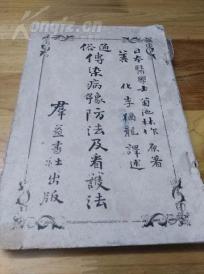 日本醫學士 菊池林作 原著
善化 李猶龍 譯述
通俗
傳染病豫防法及看護法
羣益書社出版